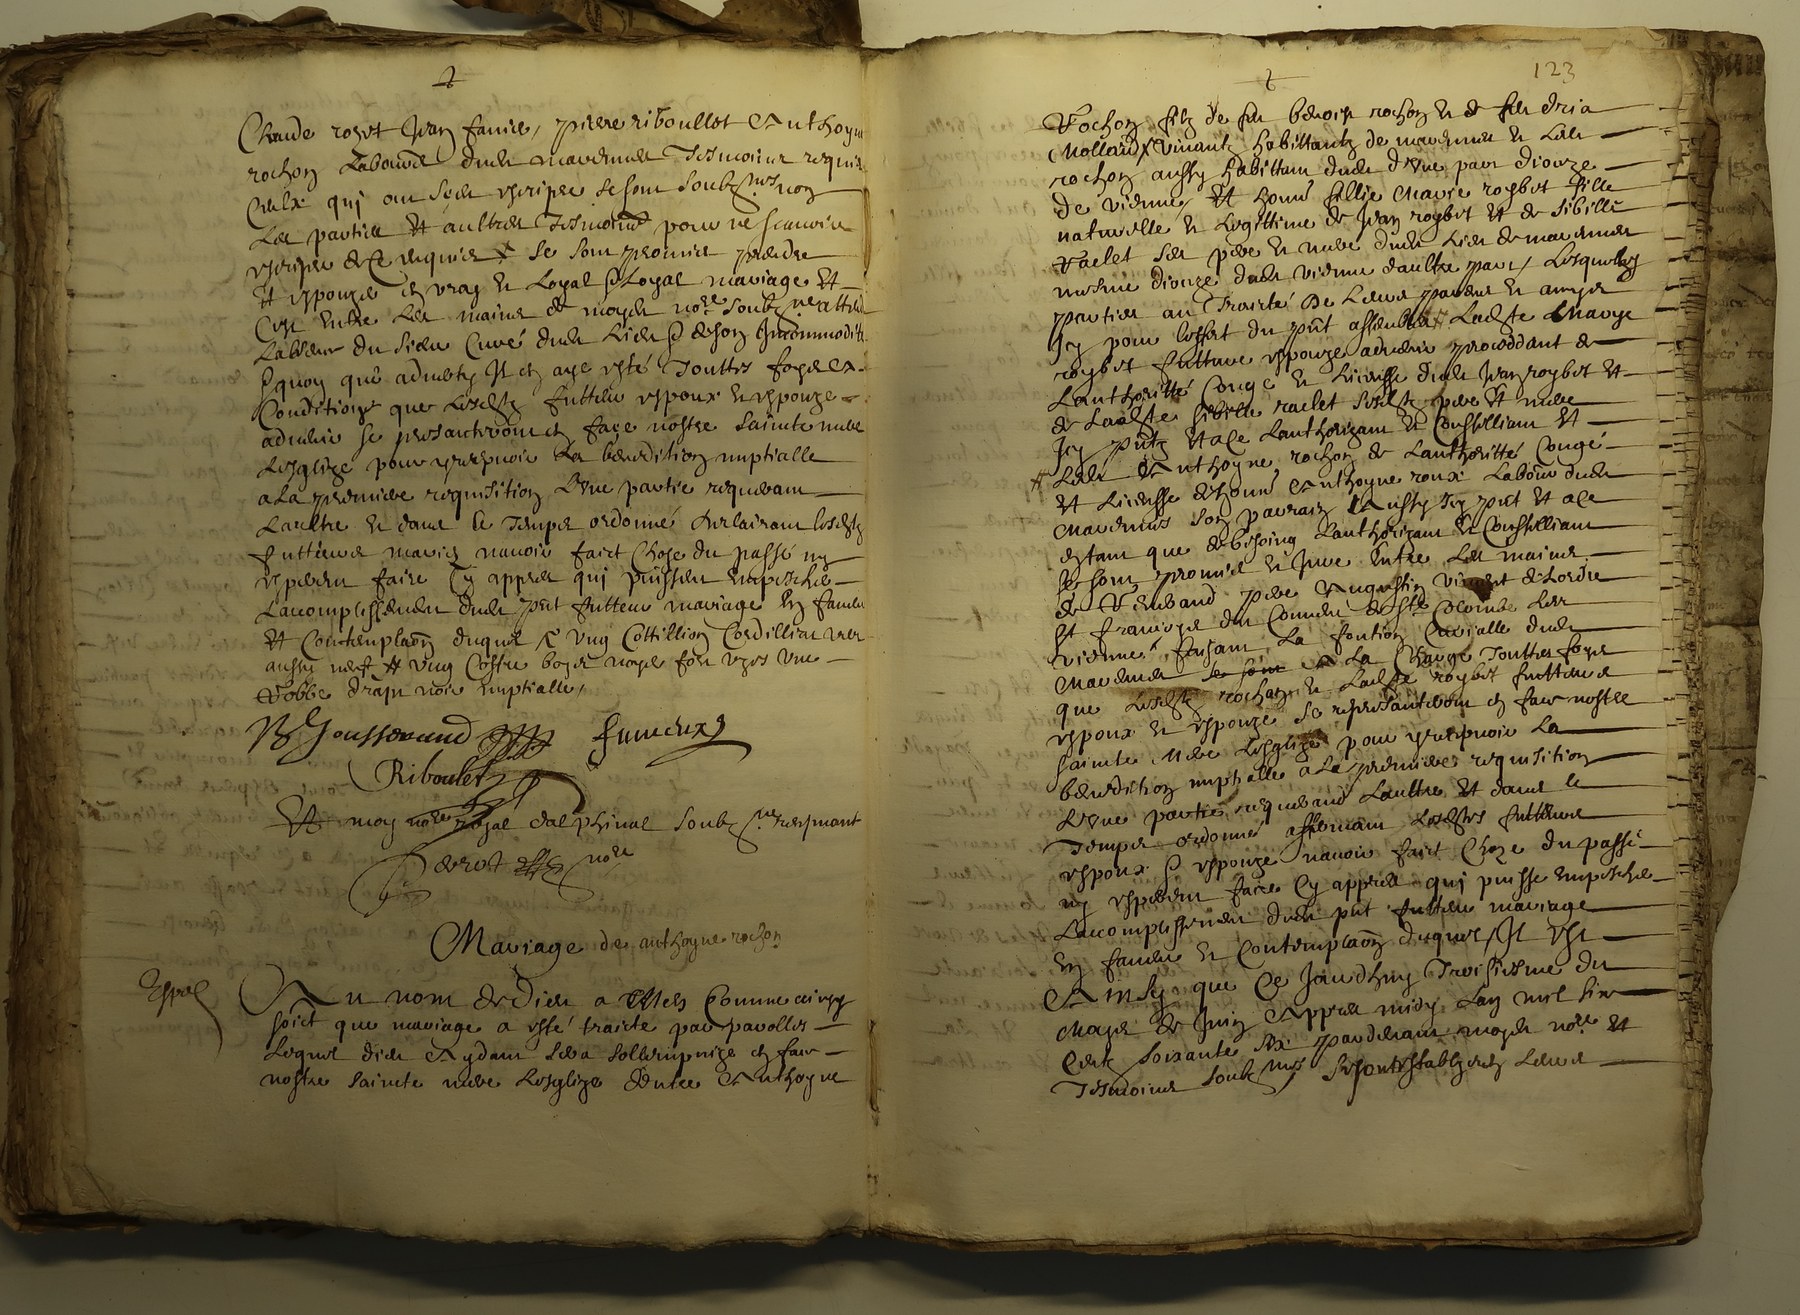 Claude roget Jean faure, pierre riboullet Anthoyne
rochon Laboureur dudit tesmoins requis
Ceulx qui ont sceu escripre se sont soubz.nés non
Les parties et aultres tesmoins pour ne scavoir
escripre de ce enquis se sont promis prendre
Et espouzer en vray et Loyal Loyal mariage Et
Cest entre Les mains de moydit no.re soubz.né attendu
Labsence du sieur Curé dudit Lieu son Incommodité
quoy que adverty Il en aye esté Touttes foys et
Conditions que Lesdits futturs espoux et espouze
advenir se presanteront en face nostre sainte mere
Lesglize pour y recepvoir La benediction nuptialle
a La premiere requisition Lune partie requerant
Laultre et dans le temps ordonné Declairant lesdits
futturs mariés navoir faict Choze du passé ny
esperer faire Cy appres qui puissent empescher
Lacomplissement dudit p.nt futtur mariage En faveur
Et Contemplaon duquel Ung Cottillion Cordillian
aussy neuf Et Ung Coffre boys noyer une
Robbe drap noir nuptialle
Joussevand
Riboulet
Et moy no.re royal dalphinal soubz.né recepvant
no.re
Mariage de anthoyne rochon
Espol
Au nom de Dieu a Amen Comme ainsy
soict que mariage a esté traicte par parolles
Lequel dieu Aydant sera sollempnize en face
nostre sainte mere Lesglize Entre Anthoyne
123
Rochon filz de feu benoist rochon et de feu dria
Mollard vivants habittants de et Ledit
rochon aussy habittant dudit dune part dioceze
de vienne Et honn. fillie Marie roybet fille
naturelle et Legittime de Jean roybet et de sibille
raclet ses pere et mere dudit Lieu de
mesme dioceze dudit vienne daultre part Lesquelles
parties au Traicté de Leurs parens et amys
Icy pour leffect du p.nt assemblés Ladite Marye
roybet futture espouze advenir proceddant de
Lauthoritté Conge et Licensse dudit Jean roybet et
de Ladite sibille raclet sesdits pere et mere
Icy p.nts et a ce Lauthorizant et Conseilliant Et
Ledit Anthoyne rochon de Lauthoritté Congé
Et Licensse de honn. Anthoyne roux Laboureur dudit
son parrain Aussy Icy p.nt Et a ce
entant que de besoing Lauthorizant et Conseilliant
se sont promis et Jure Entre Les mains
de Reverand pere Augustin vincent de Lordre
St francoys du Couvent de Ste Colombe Les
vienne faisant La fontion Curialle dudit
A La Charge Touttes foys
que Lesdits rochon et Ladite roybet futturs
espoux et espouze se representeront en face nostre
sainte Mere Lesglize pour y recepvoir La
benediction nuptialle a La premiere requisition
Lune partie requerand Laultre Et dans le
temps ordonné affermant Lesdits futturs
espoux espouze navoir faict Choze du passé
ny esperer faire Cy appres qui puisse empescher
Lacomplissement dudit p.nt futtur mariage
En faveur et Contemplaon duquel Il est
Ainsy que Ce Jourdhuy Troisiesme du
Moys de Juing Appres midy Lan mil six
Centz soixante six pardevant moydit no.re Et
Tesmoins soubz.nés se sont establys en Leurs